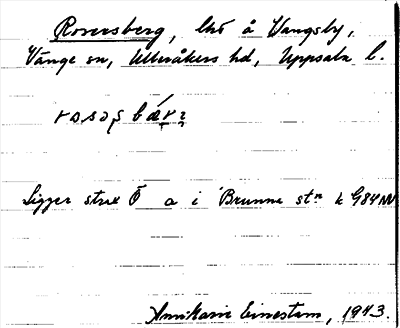 Rosersberg, lht å Vangsby,
Vänge sn, Ulleråkers hd, Uppsala l.
Ligger strax Ö a i Brunna stn k G84NV
AnnMarie Einestam, 1943.